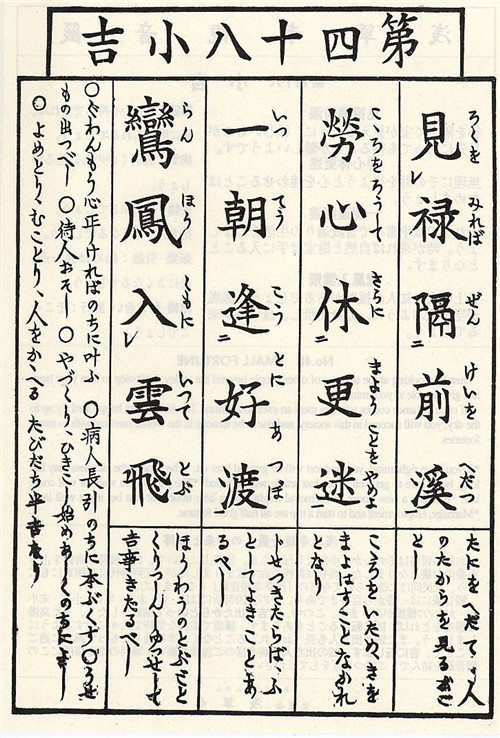 第四十八小吉
見禄隔前溪
ろくを みれば ぜんけいを へだつ
たにをへだてゝ人
のたからを見るがご
とし
勞心休更迷
こゝろをろうして さらに まようことをやめよ
こゝろをいためきを
まよはすことなかれ
となり
一朝逢好渡
いつ てう こう とに あつば
じせつきたらば、ふ
としてよきことあ
るべし
鸞鳳入雲飛
らん ほう くもに いつて とぶ
ほうわうのとぶごと
くりつしんしゆつせして
吉事きたるべし
○ぐわんもう心正ければのちに叶ふ ○病人長引のちに本ぶくす ○うせ
もの出つべし ○待人おそし ○やづくり、ひきこし始めあしくのちによし
○よめとり、むことり、人をかゝへる たびだち半吉なり